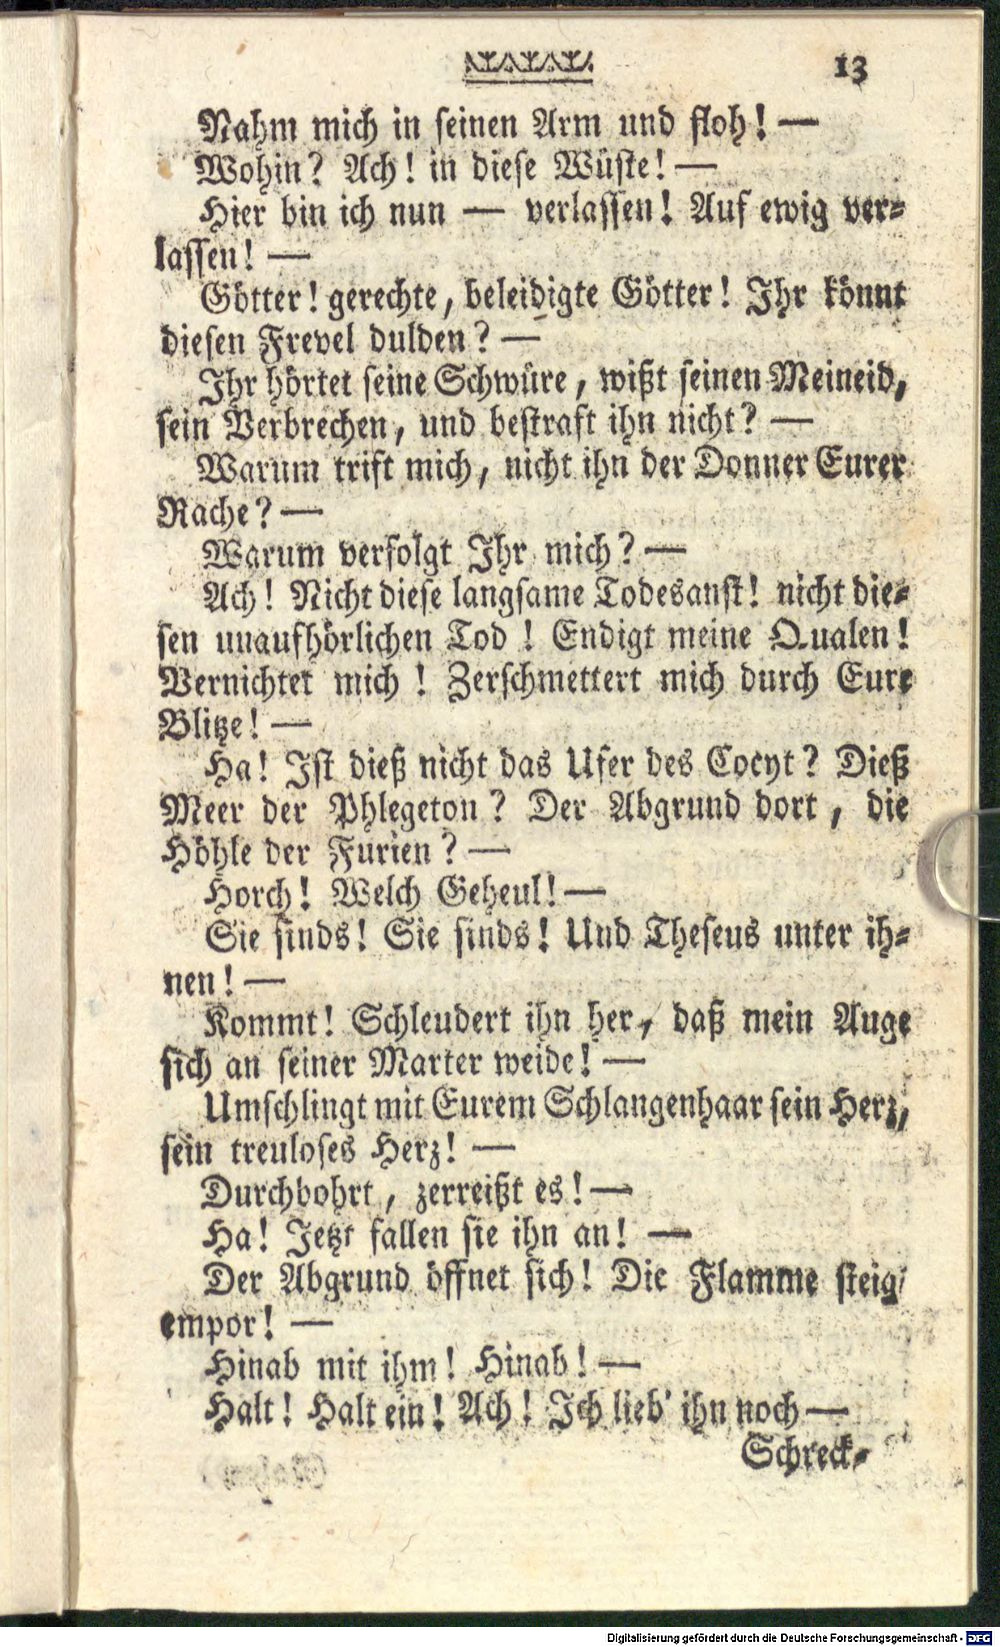 13
Nahm mich in seinen Arm und floh! —
Wohin? Ach! in diese Wüste! —
Hier bin ich nun — verlassen! Auf ewig ver-
lassen! —
Götter! gerechte, beleidigte Götter! Ihr könnt
diesen Frevel dulden? —
Ihr hörtet seine Schwüre, wißt seinen Meineid,
sein Verbrechen, und bestraft ihn nicht? —
Warum trift mich, nicht ihn der Donner Eurer
Rache? —
Warum verfolgt Ihr mich? —
Ach! Nicht diese langsame Todesanst! nicht die-
sen unaufhörlichen Tod! Endigt meine Qualen!
Vernichtet mich! Zerschmettert mich durch Eure
Blitze! —
Ha! Ist dieß nicht das Ufer des Cocyt? Dieß
Meer der Phlegeton? Der Abgrund dort, die
Höhle der Furien? —
Horch! Welch Geheul! —
Sie sinds! Sie sinds! Und Theseus unter ih-
nen! —
Kommt! Schleudert ihn her, daß mein Auge
sich an seiner Marter weide! —
Umschlingt mit Eurem Schlangenhaar sein Herz,
sein treuloses Herz! —
Durchbohrt, zerreißt es! —
Ha! Jetzt fallen sie ihn an! —
Der Abgrund öffnet sich! Die Flamme steigt
empor! —
Hinab mit ihm! Hinab! —
Halt! Halt ein! Ach! Ich lieb' ihn noch —
Schreck-
Digitalisierung gefördert durch die Deutsche Forschungsgemeinschaft - DFG